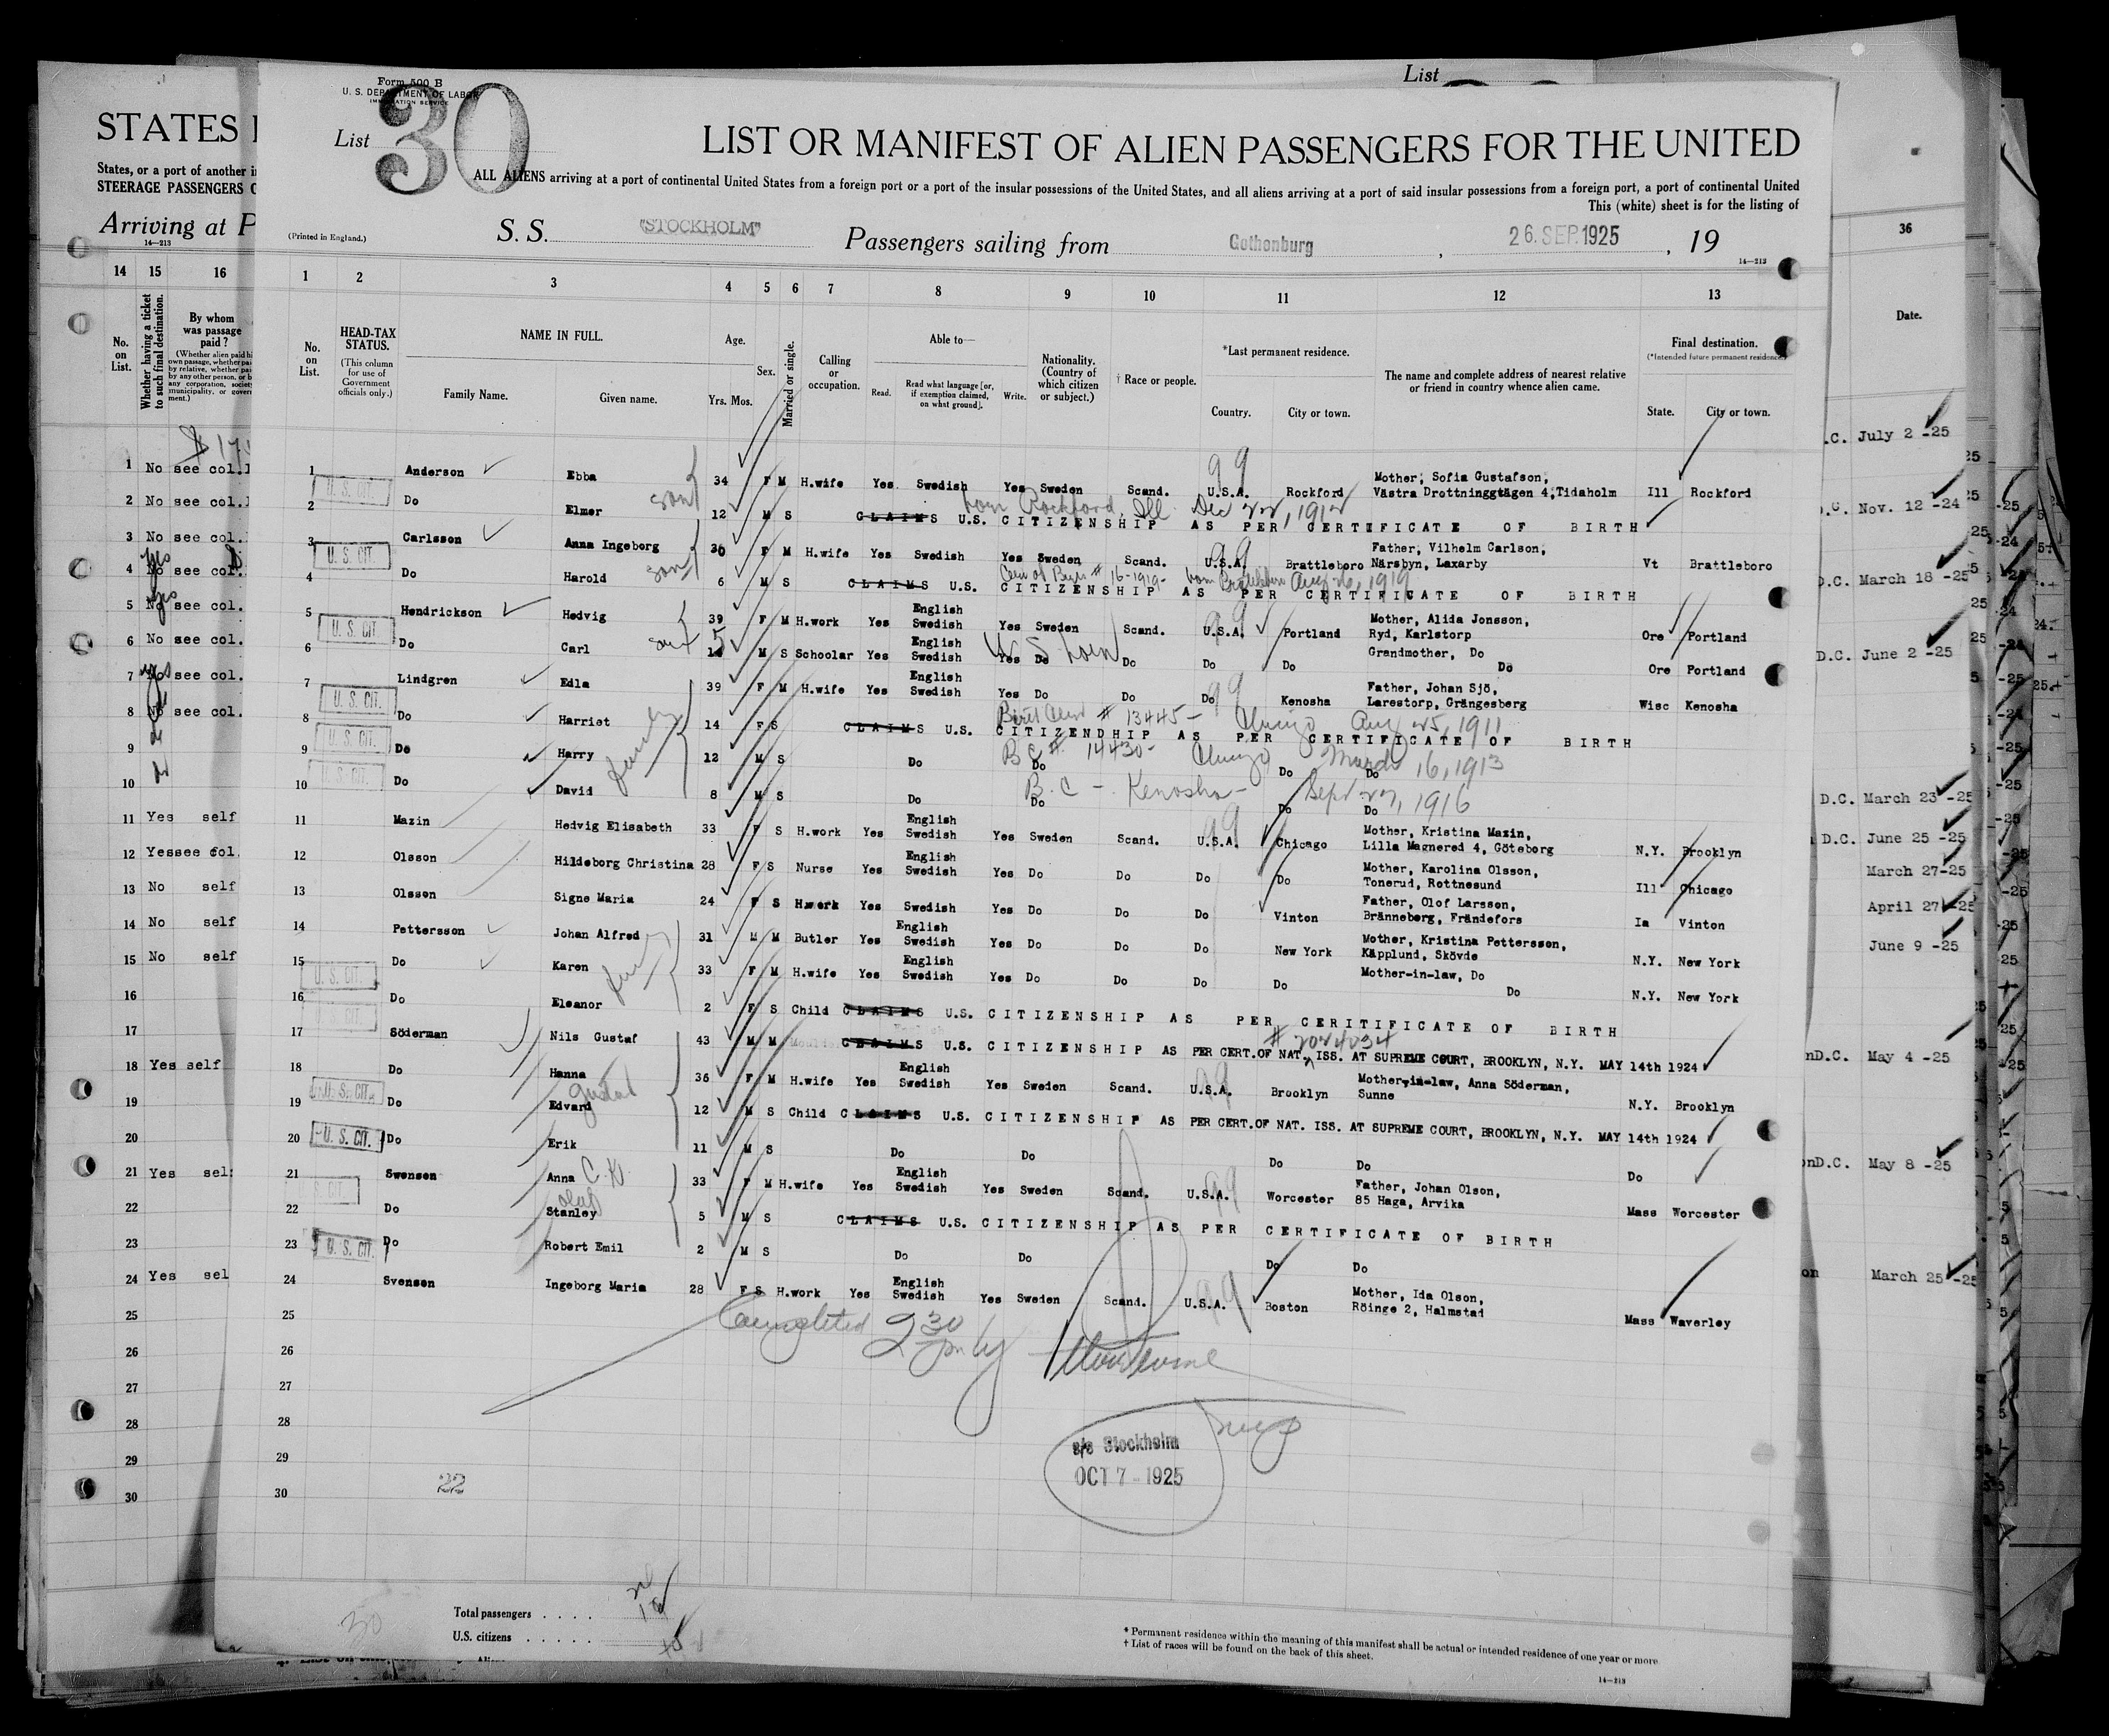 List
Form 500 B
U. S. DEPARTMENT OF LABOR
IMMIGRATION SERVICE
List 30
LIST OR MANIFEST OF ALIEN PASSENGERS FOR THE UNITED
ALL ALIENS arriving at a port of continental United States from a foreign port or a port of the insular possessions of the United States, and all aliens arriving at a port of said insular possessions from a foreign port, a port of continental United
This (white) sheet is for the listing of
(Printed in England.)
S. S. "STOCKHOLM" Passengers sailing from Gothenburg, 26. SEP. 1925, 19
14—213
1 2 3 4 5 6 7 8 9 10 11 12 13
No. on List.
HEAD-TAX STATUS.
(This column for use of Government officials only.)
NAME IN FULL.
Family Name. Given name.
Age.
Yrs. Mos.
Sex.
Married or single.
Calling or occupation.
Able to—
Read. Read what language [or, if exemption claimed, on what ground]. Write.
Nationality. (Country of which citizen or subject.)
† Race or people.
*Last permanent residence.
Country. City or town.
The name and complete address of nearest relative or friend in country whence alien came.
Final destination.
(*Intended future permanent residence.)
State. City or town.
1 Anderson Ebba 34 F M H.wife Yes Swedish Yes Sweden Scand. U.S.A. Rockford Mother, Sofia Gustafson, Västra Drottninggtägen 4,Tidaholm Ill Rockford
99
U. S. CIT.
born Rockford, Ill Dec 22, 1912
2 Do Elmer son 12 M S CLAIMS U.S. CITIZENSHIP AS PER CERTIFICATE OF BIRTH
3 Carlsson Anna Ingeborg 30 F M H.wife Yes Swedish Yes Sweden Scand. U.S.A. Brattleboro Father, Vilhelm Carlson, Närsbyn, Laxarby Vt Brattleboro
99
U. S. CIT.
Cer of Birth # 16-1919- born Brattleboro Aug 26, 1919
4 Do Harold son 6 M S CLAIMS U.S. CITIZENSHIP AS PER CERTIFICATE OF BIRTH
5 Hendrickson Hedvig 39 F M H.work Yes English Swedish Yes Sweden Scand. U.S.A. Portland Mother, Alida Jonsson, Ryd, Karlstorp Ore Portland
U. S. CIT.
6 Do Carl son 5 M S Schoolar Yes English Swedish Yes Do Do Do Do Grandmother, Do Do Ore Portland
U S born
7 Lindgren Edla 39 F M H.wife Yes English Swedish Yes Do Do Do Kenosha Father, Johan Sjö, Larestorp, Grängesberg Wisc Kenosha
99
U. S. CIT.
Birth Cert # 13445- Chicago Aug 25, 1911
8 Do Harriet 14 F S CLAIMS U.S. CITIZENDHIP AS PER CERTIFICATE OF BIRTH
family
U. S. CIT.
B C #. 14430- Chicago March 16, 1913
9 Do Harry 12 M S Do Do Do Do
U. S. CIT.
B. C - Kenosha - Sept 27, 1916
10 Do David 8 M S Do Do Do Do
11 Mazin Hedvig Elisabeth 33 F S H.work Yes English Swedish Yes Sweden Scand. U.S.A. Chicago Mother, Kristina Mazin, Lilla Magnered 4, Göteborg N.Y. Brooklyn
99
12 Olsson Hildeborg Christina 28 F S Nurse Yes English Swedish Yes Do Do Do Do Mother, Karolina Olsson, Tonerud, Rottnesund Ill Chicago
13 Olsson Signe Maria 24 F S H.work Yes Swedish Yes Do Do Do Vinton Father, Olof Larsson, Bränneberg, Frändefors Ia Vinton
14 Pettersson Johan Alfred 31 M M Butler Yes English Swedish Yes Do Do Do New York Mother, Kristina Pettersson, Käpplund, Skövde N.Y. New York
15 Do Karen 33 F M H.wife Yes English Swedish Yes Do Do Do Do Mother-in-law, Do Do N.Y. New York
U. S. CIT.
16 Do Eleanor 2 F S Child CLAIMS U.S. CITIZENSHIP AS PER CERITIFICATE OF BIRTH
U. S. CIT.
# 2024034
17 Söderman Nils Gustaf 43 M M Moulder CLAIMS U.S. CITIZENSHIP AS PER CERT.OF NAT. ISS. AT SUPREME COURT, BROOKLYN, N.Y. MAY 14th 1924
18 Do Hanna 36 F M H.wife Yes English Swedish Yes Sweden Scand. U.S.A. Brooklyn Mother-in-law, Anna Söderman, Sunne N.Y. Brooklyn
Gustaf
U. S. CIT.
19 Do Edvard 12 M S Child CLAIMS U.S. CITIZENSHIP AS PER CERT.OF NAT. ISS. AT SUPREME COURT, BROOKLYN, N.Y. MAY 14th 1924
20 U. S. CIT. Do Erik 11 M S Do Do Do Do Do
21 Swenson Anna C. K. 33 F M H.wife Yes English Swedish Yes Sweden Scand. U.S.A. Worcester Father, Johan Olson, 85 Haga, Arvika Mass Worcester
Olaf
22 Do Stanley 5 M S CLAIMS U.S. CITIZENSHIP AS PER CERTIFICATE OF BIRTH
23 U. S. CIT. Do Robert Emil 2 M S Do Do Do Do
24 Svensen Ingeborg Maria 28 F S H.work Yes English Swedish Yes Sweden Scand. U.S.A. Boston Mother, Ida Olson, Röinge 2, Halmstad Mass Waverley
99
25
26
27
28
29
30
Completed 230 only
22
s/s Stockholm
OCT 7 - 1925
30
Total passengers . . . .
U.S. citizens . . . . .
* Permanent residence within the meaning of this manifest shall be actual or intended residence of one year or more
† List of races will be found on the back of this sheet.
14—213
STATES
States, or a port of another
STEERAGE PASSENGERS
Arriving at P
14—213
14 15 16
No. on List.
Whether having a ticket to such final destination.
By whom was passage paid?
1 No see col.
2 No see col.
3 No see col.
4 No see col.
5 No see col.
6 No see col.
7 No see col.
8 No see col.
9
10
11 Yes self
12 Yes see col.
13 No self
14 No self
15 No self
16
17
18 Yes self
19
20
21 Yes sel
22
23
24 Yes sel
25
26
27
28
29
30
36
Date.
.C. July 2 -25
.C. Nov. 12 -24
D.C. March 18 -25
D.C. June 2 -25
D.C. March 23 -25
D.C. June 25 -25
March 27-25
April 27-25
June 9 -25
nD.C. May 4 -25
onD.C. May 8 -25
on March 25 -25